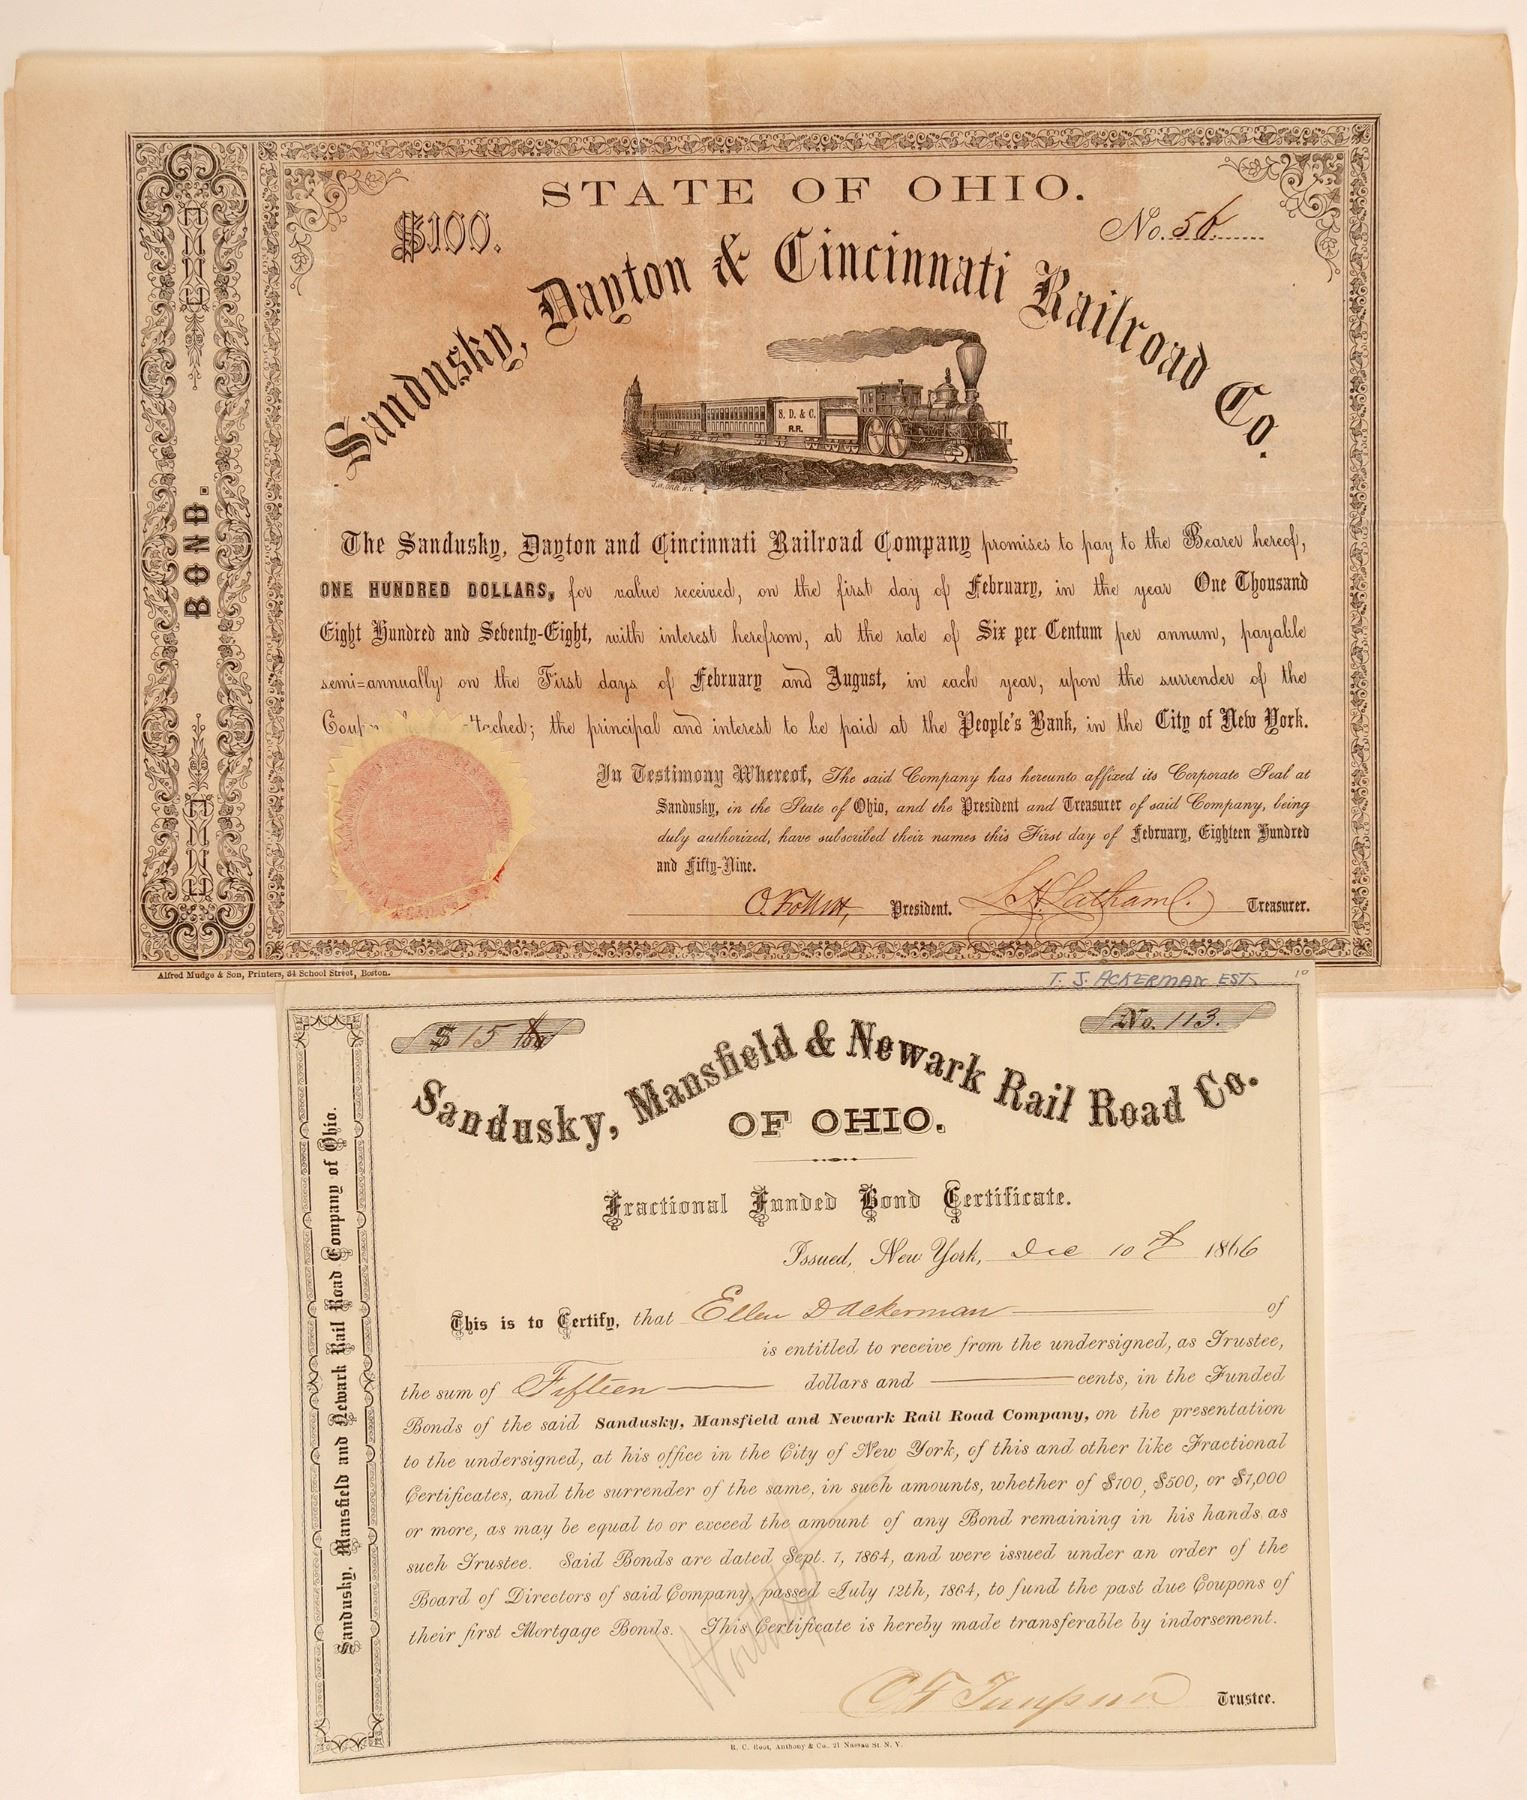 STATE OF OHIO.
$100.
No. 56
Sandusky, Dayton & Cincinnati Railroad Co.
S. D. & C.
R.R.
BOND.
The Sandusky, Dayton and Cincinnati Railroad Company promises to pay to the Bearer hereof,
ONE HUNDRED DOLLARS, for value received, on the first day of February, in the year One Thousand
Eight Hundred and Seventy-Eight, with interest herefrom, at the rate of Six per Centum per annum, payable
semi=annually on the First days of February and August, in each year, upon the surrender of the
the principal and interest to be paid at the People's Bank, in the City of New York.
In Testimony Whereof, The said Company has hereunto affixed its Corporate Seal at
Sandusky, in the State of Ohio, and the President and Treasurer of said Company, being
duly authorized, have subscribed their names this First day of February, Eighteen Hundred
and Fifty-Nine.
O. Follett, President. Latham Treasurer.
Alfred Mudge & Son, Printers, 34 School Street, Boston.
T. J. ACKERMAN EST.
10
$ 15
No. 113.
Sandusky, Mansfield & Newark Rail Road Co.
OF OHIO.
Fractional Funded Bond Certificate.
Issued, New York, Dec 10th 1866
This is to Certify, that Ellen D Ackerman of
is entitled to receive from the undersigned, as Trustee,
the sum of Fifteen dollars and cents, in the Funded
Bonds of the said Sandusky, Mansfield and Newark Rail Road Company, on the presentation
to the undersigned, at his office in the City of New York, of this and other like Fractional
Certificates, and the surrender of the same, in such amounts, whether of $100, $500, or $1,000
or more, as may be equal to or exceed the amount of any Bond remaining in his hands as
such Trustee. Said Bonds are dated Sept. 1, 1864, and were issued under an order of the
Board of Directors of said Company, passed July 12th, 1864, to fund the past due Coupons of
their first Mortgage Bonds. This Certificate is hereby made transferable by indorsement.
Trustee.
R. C. Root, Anthony & Co., 21 Nassau St. N. Y.
Sandusky, Mansfield and Newark Rail Road Company of Ohio.